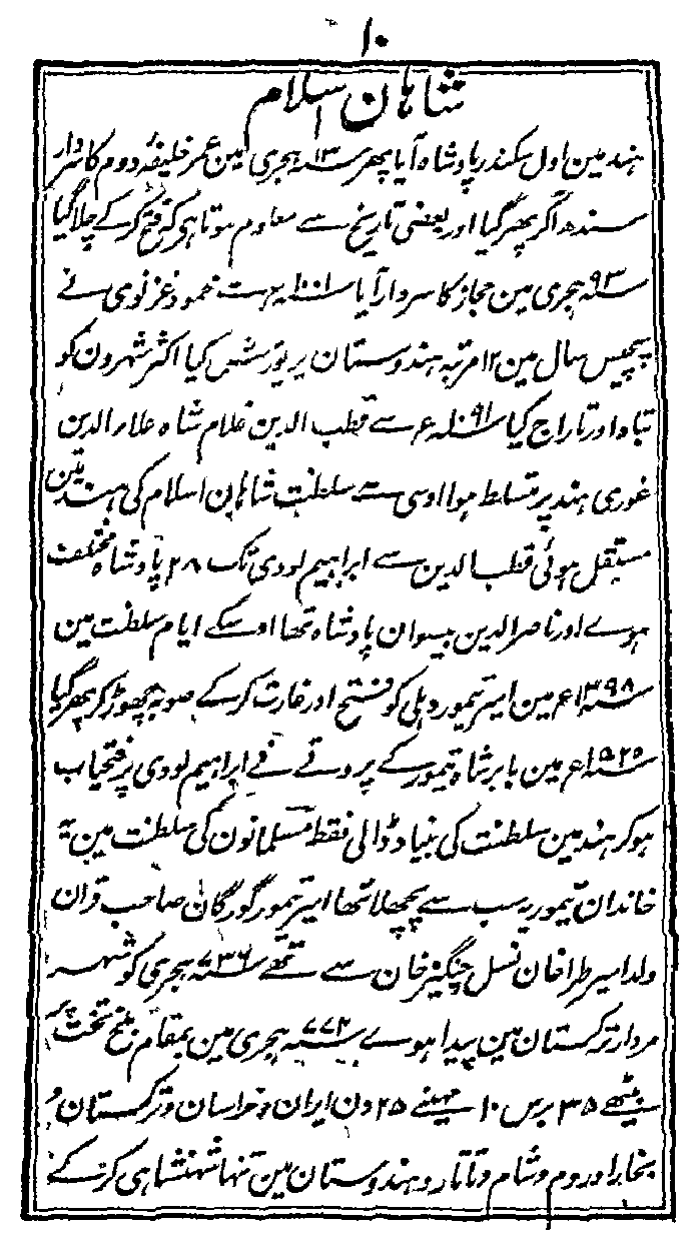 ۱۰
شاہان اسلام
ہند مین اول سکندر پادشاہ آیا پھر ۱۳؁ ہجری مین عمر خلیفہ دوم کا سردار
سندھ آکر پھر گیا اور بعضی تاریخ سے معلوم ہوتا ہی کہ فتح کر کے چلا گیا
۹۳؁ ہجری مین حجاز کا سردار آیا ۱۰۰۱؁ محمود غزنوی نے
پچیس سال مین ۱۲ مرتبہ ہندوستان پر یورش کیا اکثر شہرون کو
تباہ اور تاراج کیا ؁ع سے قطب الدین غلام شاہ علاء الدین
غوری ہند پر مسلط ہوا اوسی سے سلطنت شاہان اسلام کی ہند مین
مستقل ہوئی قطب الدین سے ابراہیم لودی تک ۲۸ پادشاہ مختلف
ہوے اور ناصر الدین بیسوان پادشاہ تھا اوسکے ایام سلطنت مین
۱۳۹۸؁ع مین امیر تیمور دہلی کو فتح اور غارت کر کے صوبہ چھوڑ کر پھر گیا
۱۵۲۵؁ع مین بابر شاہ تیمور کے پروتے نے ابراہیم لودی پر فتحیاب
ہو کر ہند مین سلطنت کی بنیاد ڈالی فقط مسلمانون کی سلطنت مین یہ
خاندان تیموریہ سب سے پچھلا تھا امیر تیمور گورگان صاحب قران
ولد امیر طراخان نسل چنگیز خان سے تھے ۷۳۶؁ ہجری کو شہر
مردار ترکستان مین پیدا ہوے ۷۷۲؁ ہجری مین بمقام بلخ تخت پر
بیٹھے ۳۵ برس ۱۰ مہینے ۲۵ دن ایران و خراسان و ترکستان و
بخارا و روم و شام و تاتار و ہندوستان مین تنہا شہنشاہی کر کے